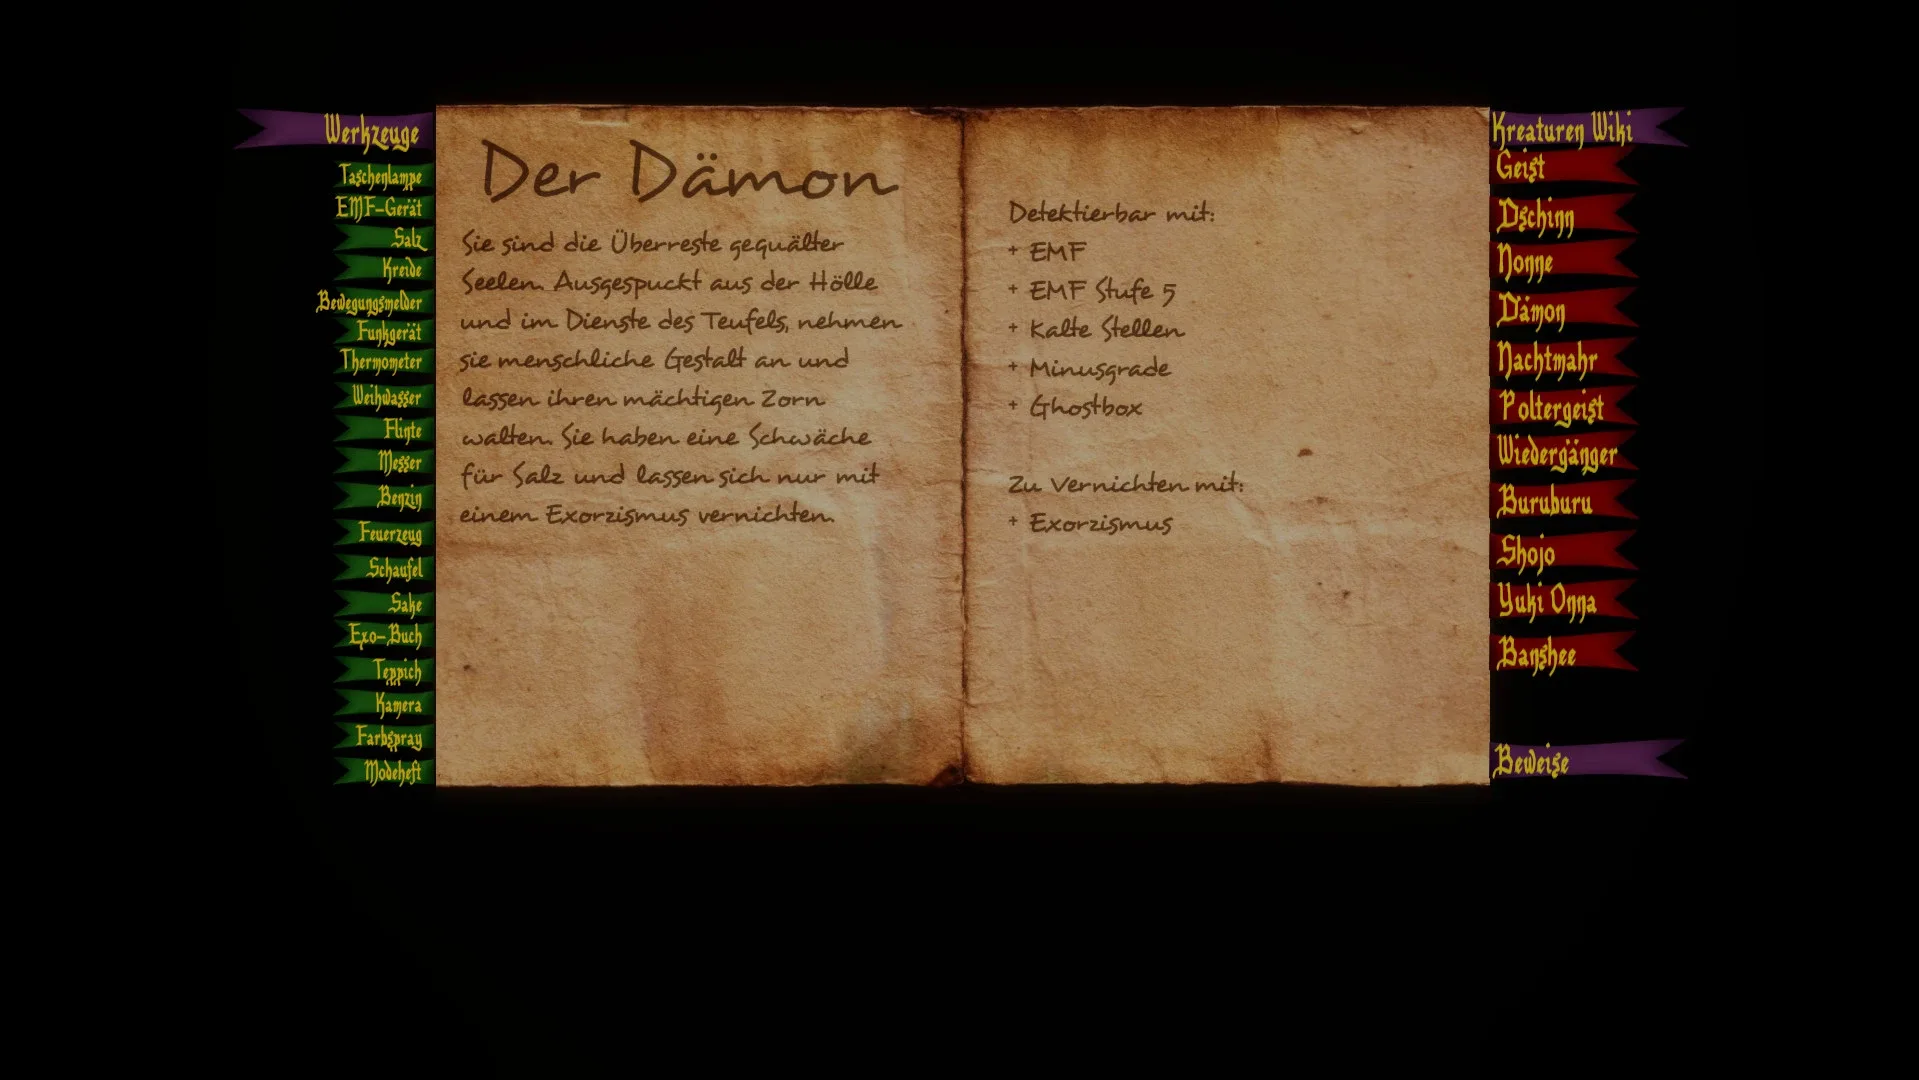 Werkzeuge
Taschenlampe
EMF-Gerät
Salz
Kreide
Bewegungsmelder
Funkgerät
Thermometer
Weihwasser
Flinte
Messer
Benzin
Feuerzeug
Schaufel
Sake
Exo-Buch
Teppich
Kamera
Farbspray
Modeheft
Der Dämon
Sie sind die Überreste gequälter
Seelen. Ausgespuckt aus der Hölle
und im Dienste des Teufels, nehmen
sie menschliche Gestalt an und
lassen ihren mächtigen Zorn
walten. Sie haben eine Schwäche
für Salz und lassen sich nur mit
einem Exorzismus vernichten.
Detektierbar mit:
+ EMF
+ EMF Stufe 5
+ Kalte Stellen
+ Minusgrade
+ Ghostbox
Zu Vernichten mit:
+ Exorzismus
Kreaturen Wiki
Geist
Dschinn
Nonne
Dämon
Nachtmahr
Poltergeist
Wiedergänger
Buruburu
Shojo
Yuki Onna
Banshee
Beweise